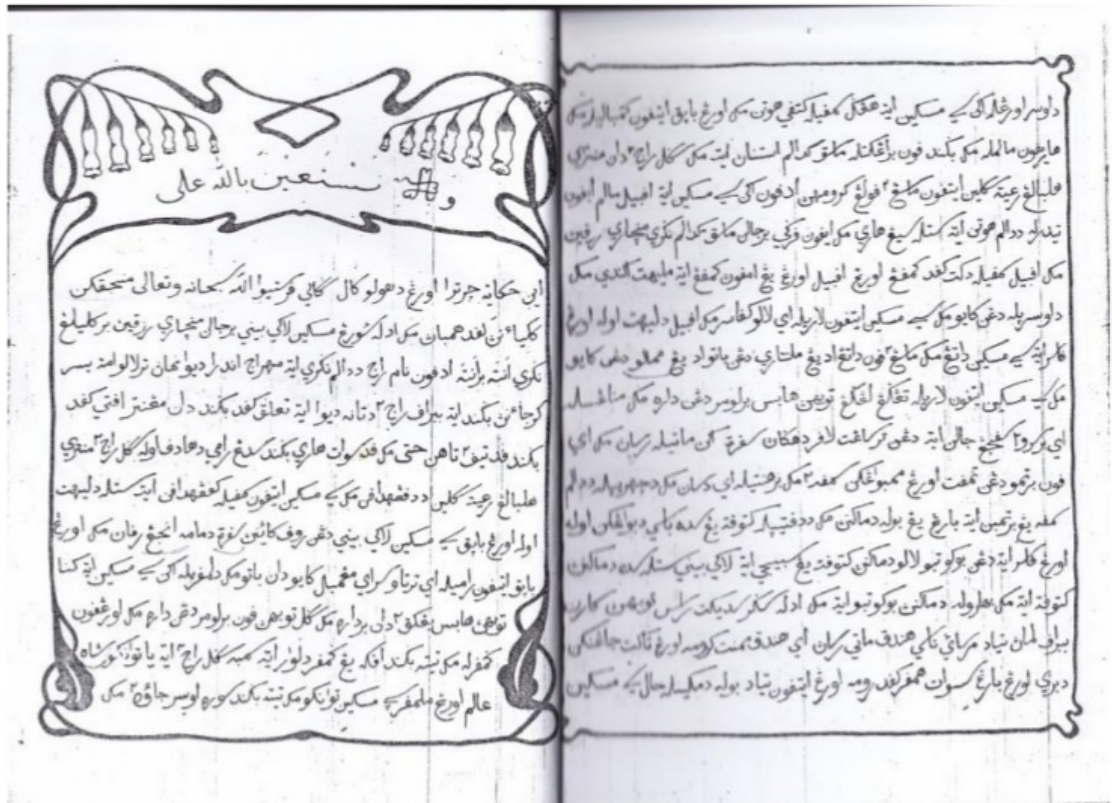 وبه نستعين بالله على
اين حكاية چرترا اورڠ دهولو كال كاڽي فرستيوا الله سبحانه وتعالى منجقكن
كليائن فد همبان مك اداله سؤرڠ مسكين لاكي بيني برجالن منچاري رزقين بركليلڠ
نكري انته برانته ادفون نام راج ددالم نكري ايت مهراج اندرا ديوا نمان ترلالو امت بسر
كرجائن بكند ايت ببراف راج٢ دتانه ديوا ايت تعلق كفد بكند دان مڠنتر افتي كفد
بكند فد تيف٢ تاهن حتى مك فد سوات هاري بكند سدڠ رامي دهادف اوله سكل راج٢ منتري
هلبالڠ رعية سكلين دفڠهدافن مك سي مسكين ايتفون كفيله كفڠهدافن ايت ستله دليهت
اوله اورڠ باڽق سي مسكين لاكي بيني دڠن روف كائنن سفرة دمامه انجيڠ رفان مك اورڠ
باڽق ايتفون راميله اي ترتاوا سراي مڠمبيل كايو دان باتو مك دلمفرله اكن سي مسكين ايت كنا
توبهن هابس بڠكق٢ دان برداره مك سكل توبهن فون برلومر دڠن داره مك اورڠفون
كمفرله مك تيته بكند افكه يڠ كمفر دلوار ايت سمبه سكل راج٢ ايت يا توانكو شاه
عالم اورڠ ملمفر سي مسكين توانكو مك تيته بكند سوره اوسر جاؤه٢ مك
داوسر اورڠله اكن سي مسكين ايت هڠك كفيله كتفي هوتن مك اورڠ باڽق ايتفون كمباليله مك
هاريفون مالمله مك بكند فون برڠكتله ماسق كدالم استان ايت مك سكل راج٢ دان منتري
هلبالڠ رعية سكلين ايتفون ماسيڠ٢ فولڠ كرومهن ادفون اكن سي مسكين ايت افبيل مالم ايفون
تيدرله ددالم هوتن ايت ستله سيڠ هاري مك ايفون فركي برجالن ماسق كدالم نكري منچاري رزقين
مك افبيل كفيله دكت كفد كمفڠ اورڠ افبيل اورڠ يڠ امفون كمفڠ ايت مليهت اكندي مك
داوسرله دڠن كايو مك سي مسكين ايتفون لاريله اي لالو كفاسر مك افبيل دليهت اوله اورڠ
فاسر ايت سي مسكين داتڠ مك ماسيڠ٢ فون داتڠ اد يڠ ملنتاري دڠن باتو اد يڠ ممالو دڠن كايو
مك سي مسكين ايتفون لاريله تڠڬلڠ لڠڬڠ توبهن هابس برلومر دڠن داره مك مناڠسله
اي برسرو٢ سفنجڠ جالن ايت دڠن ترساڠت لافر دهڬان سفرة اكن ماتيله رسان مك اي
فون برتمو دڠن تمفت اورڠ ممبواڠكن سمفه٢ مك برهنتيله اي دسان مك دچهريله ددالم
سمفه يڠ برتمبن ايت بارڠ يڠ بوله دماكن مك ددفتيله كتوفت يڠ سده باسي دبواڠكن اوله
اورڠ فاسر ايت دڠن بوكو تبو لالو دماكن كتوفت يڠ سبيجي ايت لاكي بيني ستله سده دماكن
كتوفت ايت مك بهاروله دماكن بوكو تبو ايت مك اداله سڬر سديكت راس توبهن كارن
ببراف لمان تياد مراساءي ناسي هندق ماتي رسان اي هندق ممنت كرومه اورڠ تاكت جاڠنكن
دبري اورڠ بارڠ سسوات همفر كفد رومه اورڠ ايتفون تياد بوله دمكينله حال سي مسكين